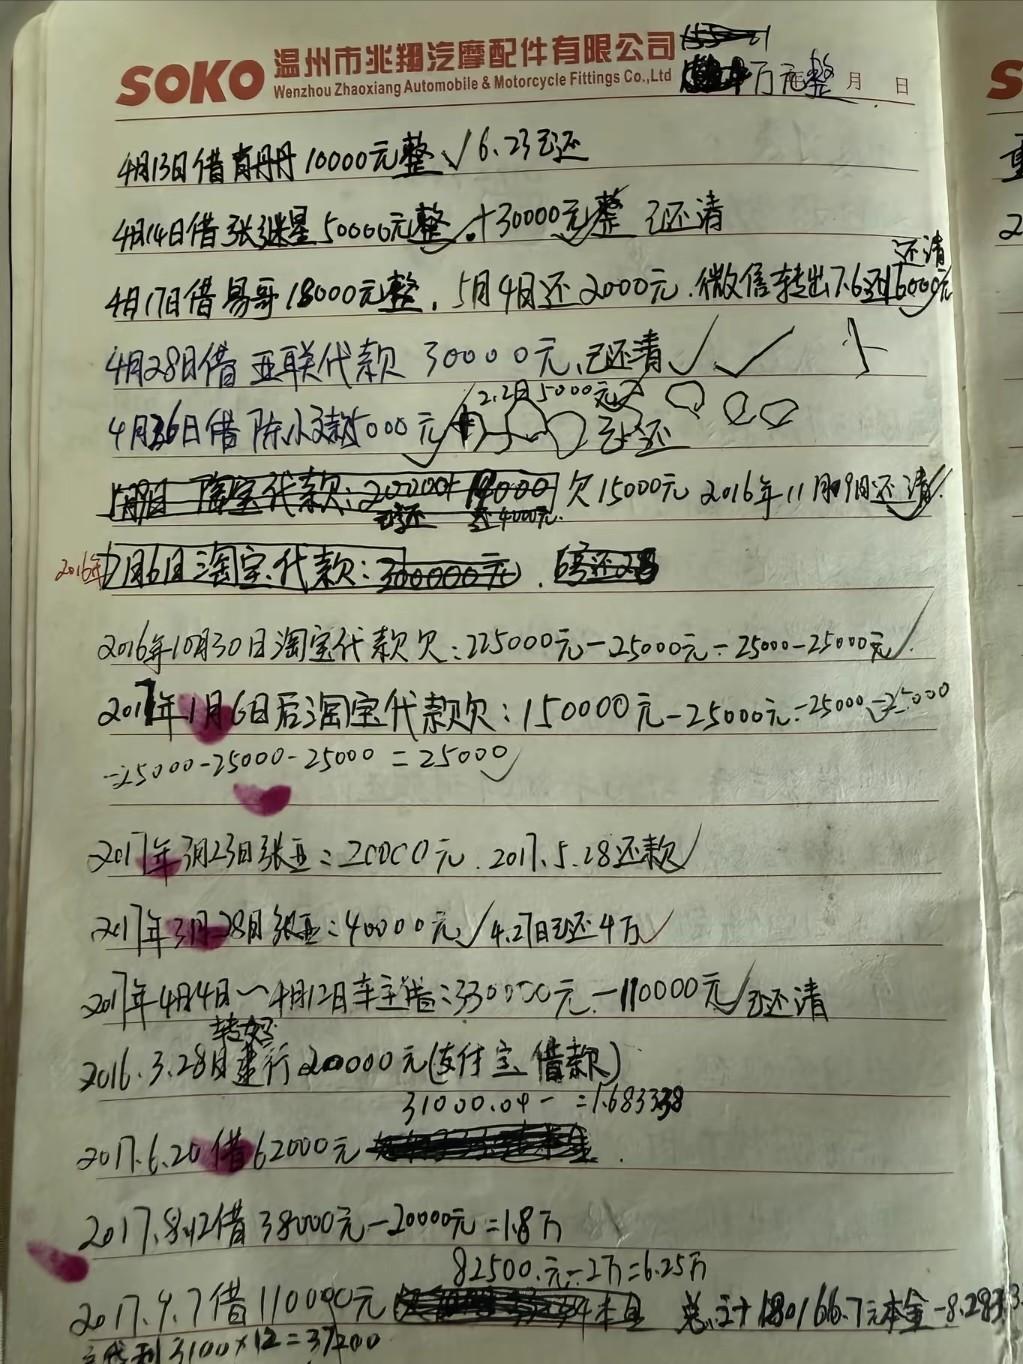 SOKO 温州市兆翔汽摩配件有限公司
Wenzhou Zhaoxiang Automobile & Motorcycle Fittings Co.,Ltd
万元整 月 日
4月13日借 丹丹 10000元整 √ 6.23已还
4月14日借张继星50000元整 √ +30000元整 已还清
还清
4月17日借易哥18000元整，5月4日还2000元.微信转出7.6还16000元
4月28日借亚联代款 30000元，已还清 √ √
2.2日5000元
4月 6日借陈小 5000元 已还
淘宝代款: 200000 欠15000元 2016年11月09日还清
已还 还4000元.
2016年7月6日淘宝代款: 300000元.
2016年10月30日淘宝代款欠:225000元-25000元-25000-25000元 √
2017年1月6日后淘宝代款欠:150000元-25000元-25000-25000
-25000-25000-25000=25000 √
2017年3月23日张亚:20000元.2017.5.28还款 √
2017年3月28日张亚:40000元 √ 4.27日已还4万 √
2017年4月4日~4月12日车主借:330000元-110000元 √ 已还清
2016.3.28日建行200000元(支付宝借款)
31000.04- =1.683338
2017.6.20借62000元
2017.8.12借38000元-20000元=1.8万
82500.元-2万=6.25万
2017.9.7借110000元 本息 总计180166.7元本金-8.283
3100×12=37200